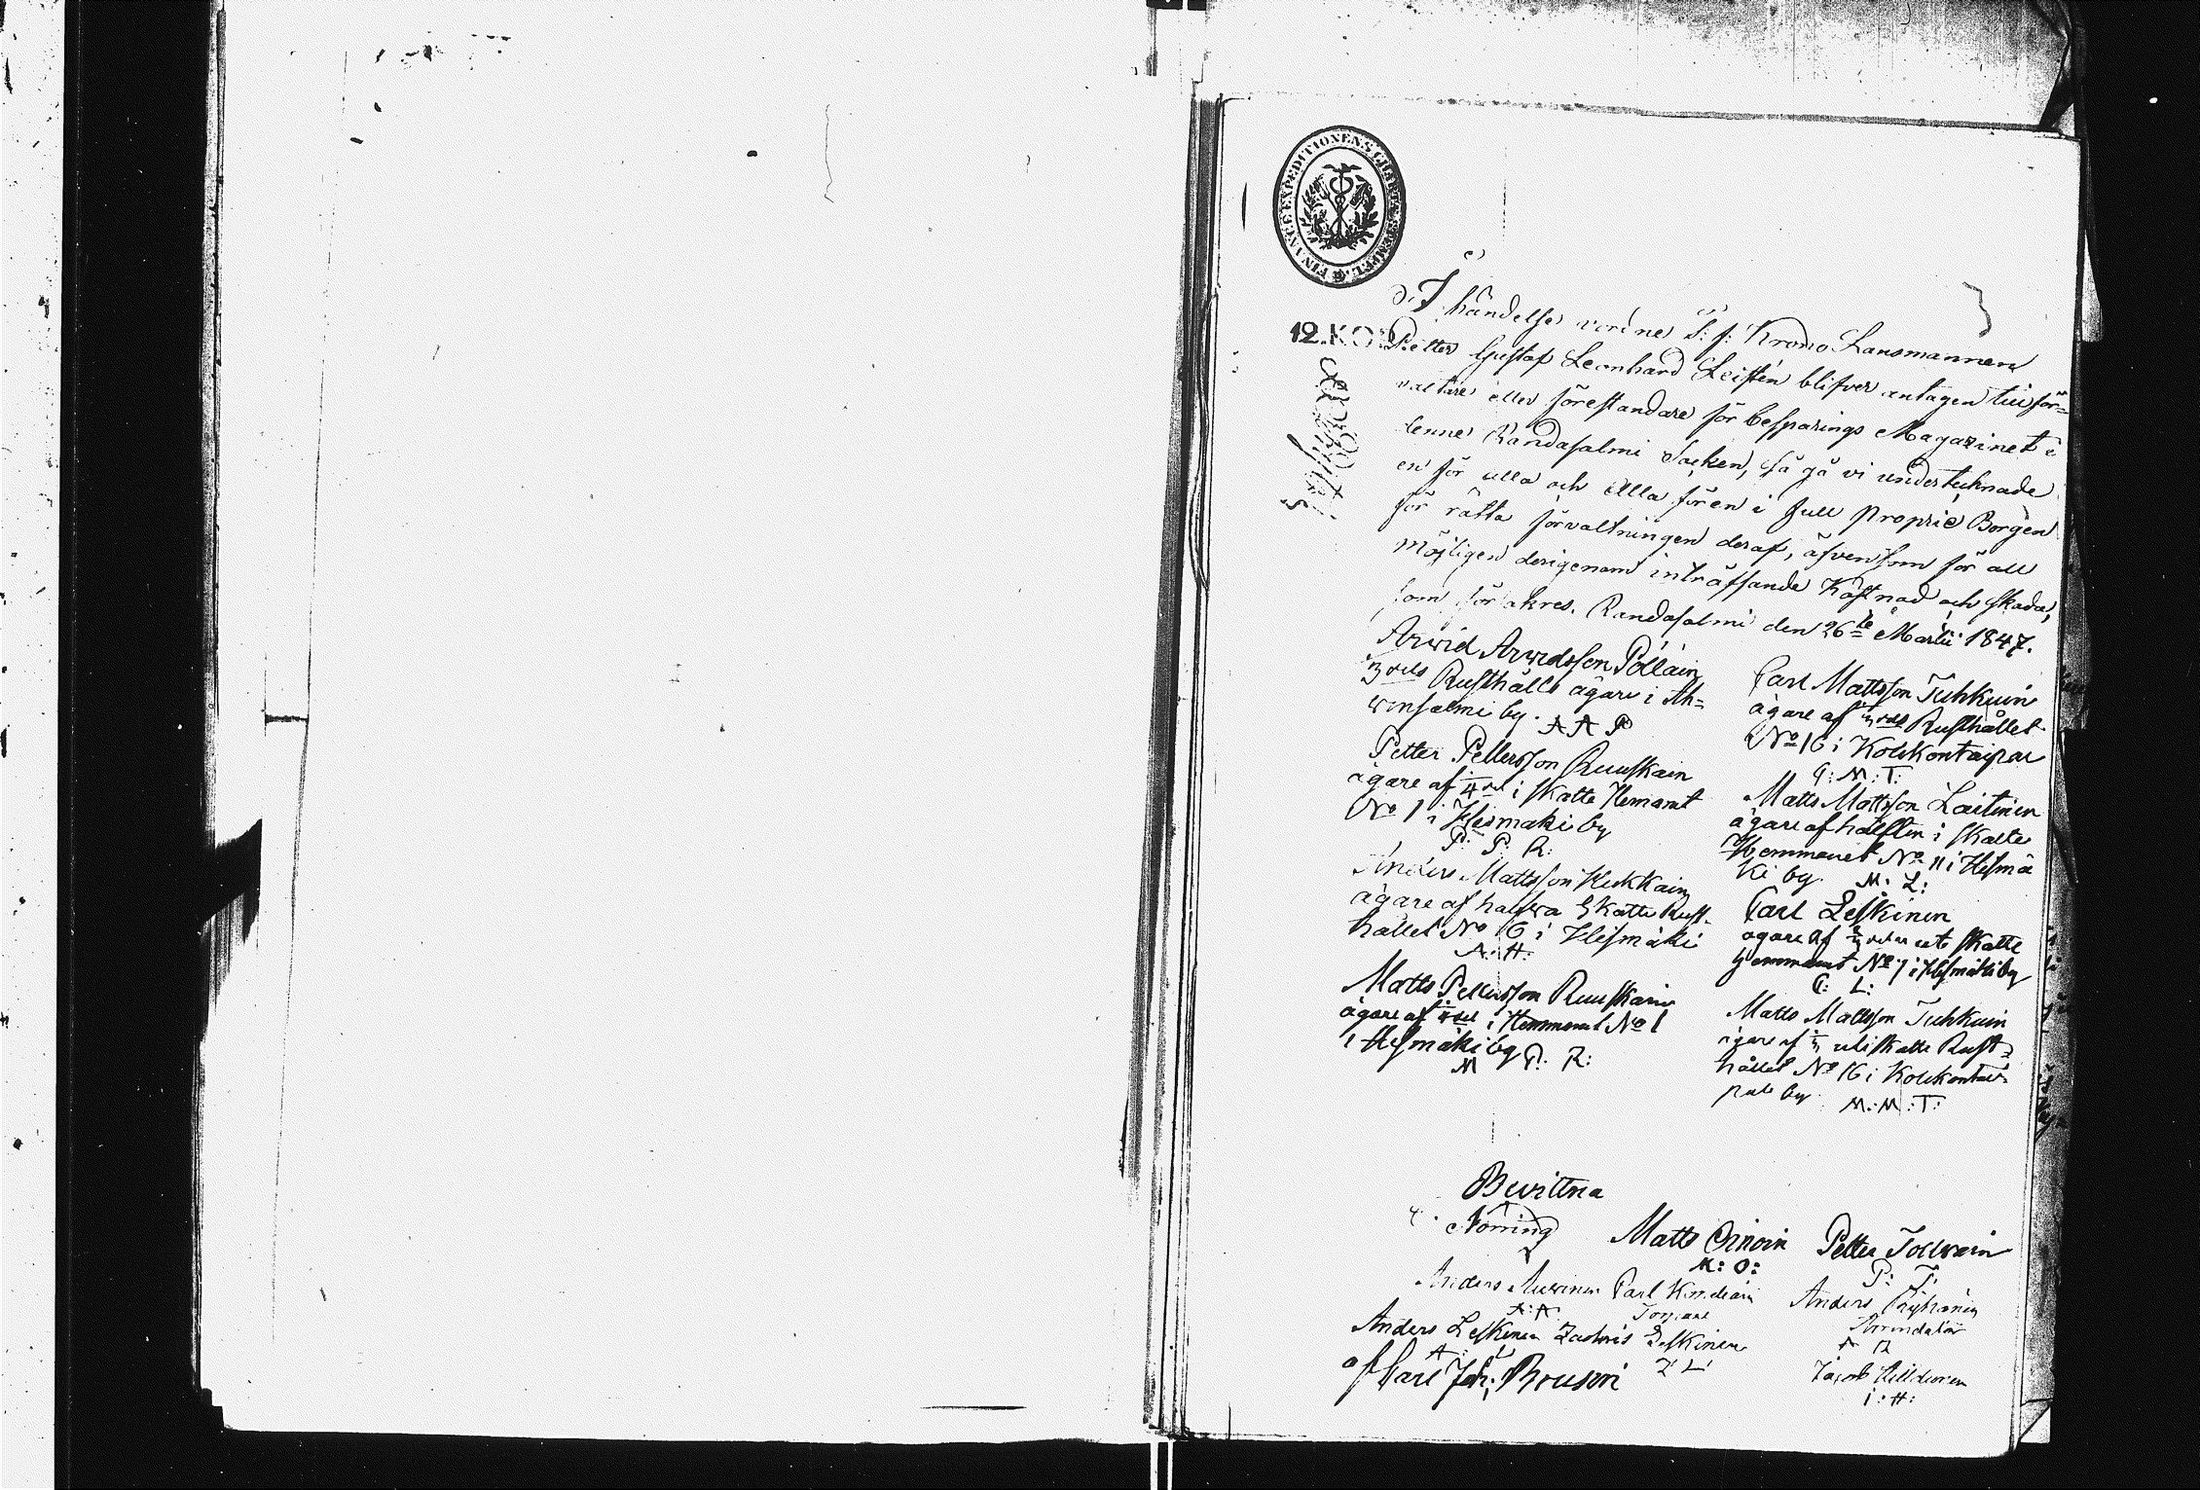 FINANCE EXPEDITIONENS CHARTÆ STEMPEL
12.KO
I händelse vice Krono Länsmannen
Petter Gustaf Leonhard Leistén blifver antagen till för=
valtare eller föreståndare för besparings Magazinet i
denne Randasalmi Socken, så gå vi undertecknade
en för alla och alla för en i full proprie Borgen
för rätta förvaltningen deraf, äfvensom för all
möjligen derigenom inträffande Kostnad och skada,
som försäkres. Randasalmi den 26te Martii 1847.
Arwid Arwidsson Pölläin
Rusthålls ägare i Ah=
wensalmi by. A A P
Petter Pettersson Ruuskain
ägare af 1/4 del i Skatte Hemamt
No 1 i Hesmäki by
P: P: R:
Anders Mattsson Heikkain
ägare af halfva Skatte Rust-
hållet No 6 i Hesmäki
A: H:
Matts Pettersson Ruuskain
ägare af del i Hemmant No 1
i Hesmäki by
M P: R:
Carl Mattsson Tuhkuin
ägare af Rusthållet
No 16 i Kolkontaipal
C: M: T:
Matts Mattsson Laitinen
ägare af hälften i Skatte
Hemmanet No 11 i Hesmä
ki by. M: L:
Carl Leskinen
ägare af Skatte
Hemmant No 7 i Hesmäki by
C: L:
Matts Mattsson Tuhkuin
ägare af Skatte Rust=
hållet No 16 i Kolkontai
pale by M: M: T:
Bevittna
Norring Matts Oinoin Petter Tolwain
M: O: P: T:
Anders Auvinen Carl
A: A:
Anders
Anders Leskinen Zachris Leskinen
A: L Z L
Carl Joh: Brusin
Jacob
I: H: